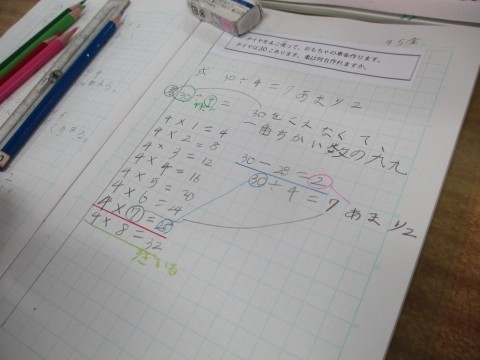 タイヤを4こ使って、おもちゃの車を作ります。
タイヤは30こあります。車は何台作れますか。
式 30÷4=7あまり2
30÷4=
30をこえなくて、
一番ちかい数の九九
4×1=4
4×2=8
4×3=12
4×4=16
4×5=20
4×6=24
4×7=28
4×8=32
30-28=2
30÷4=7あまり2